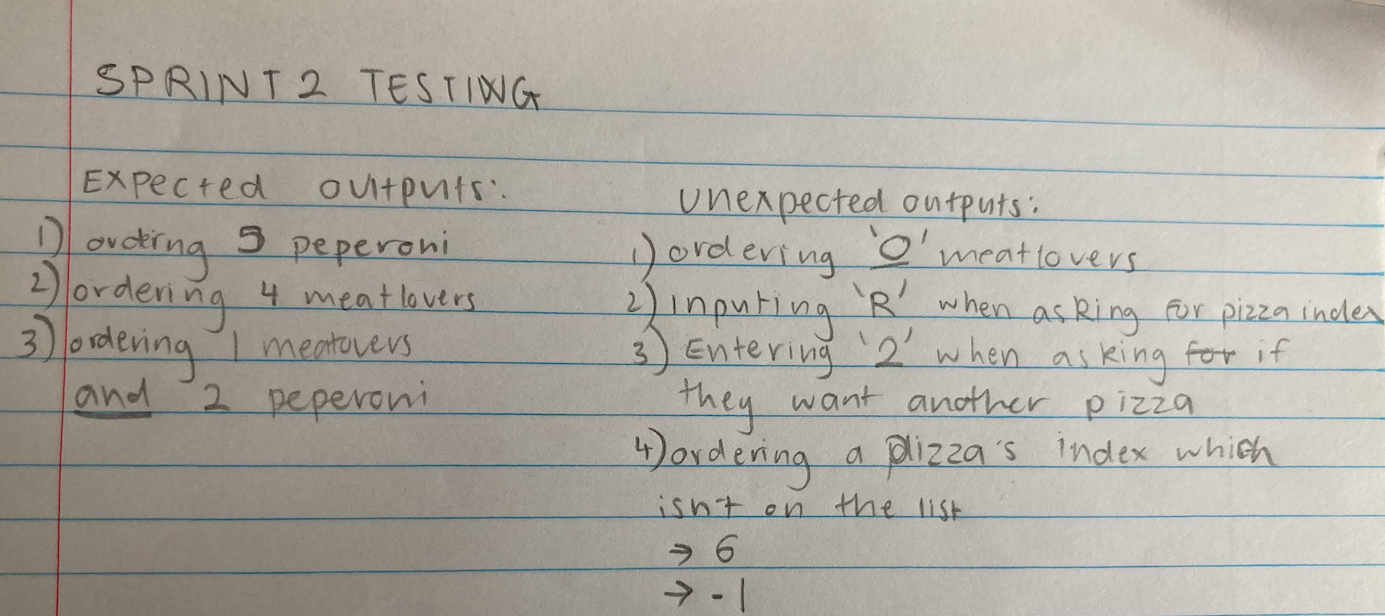 SPRINT 2 TESTING
Expected outputs:
1) ordering 5 peperoni
2) ordering 4 meatlovers
3) ordering 1 meatovers
and 2 peperoni
unexpected outputs:
1) ordering 'O' meatlovers
2) Inputing 'R' when asking for pizza index
3) Entering '2' when asking for if
they want another pizza
4) ordering a pizza's index which
isn't on the list
→ 6
→ -1